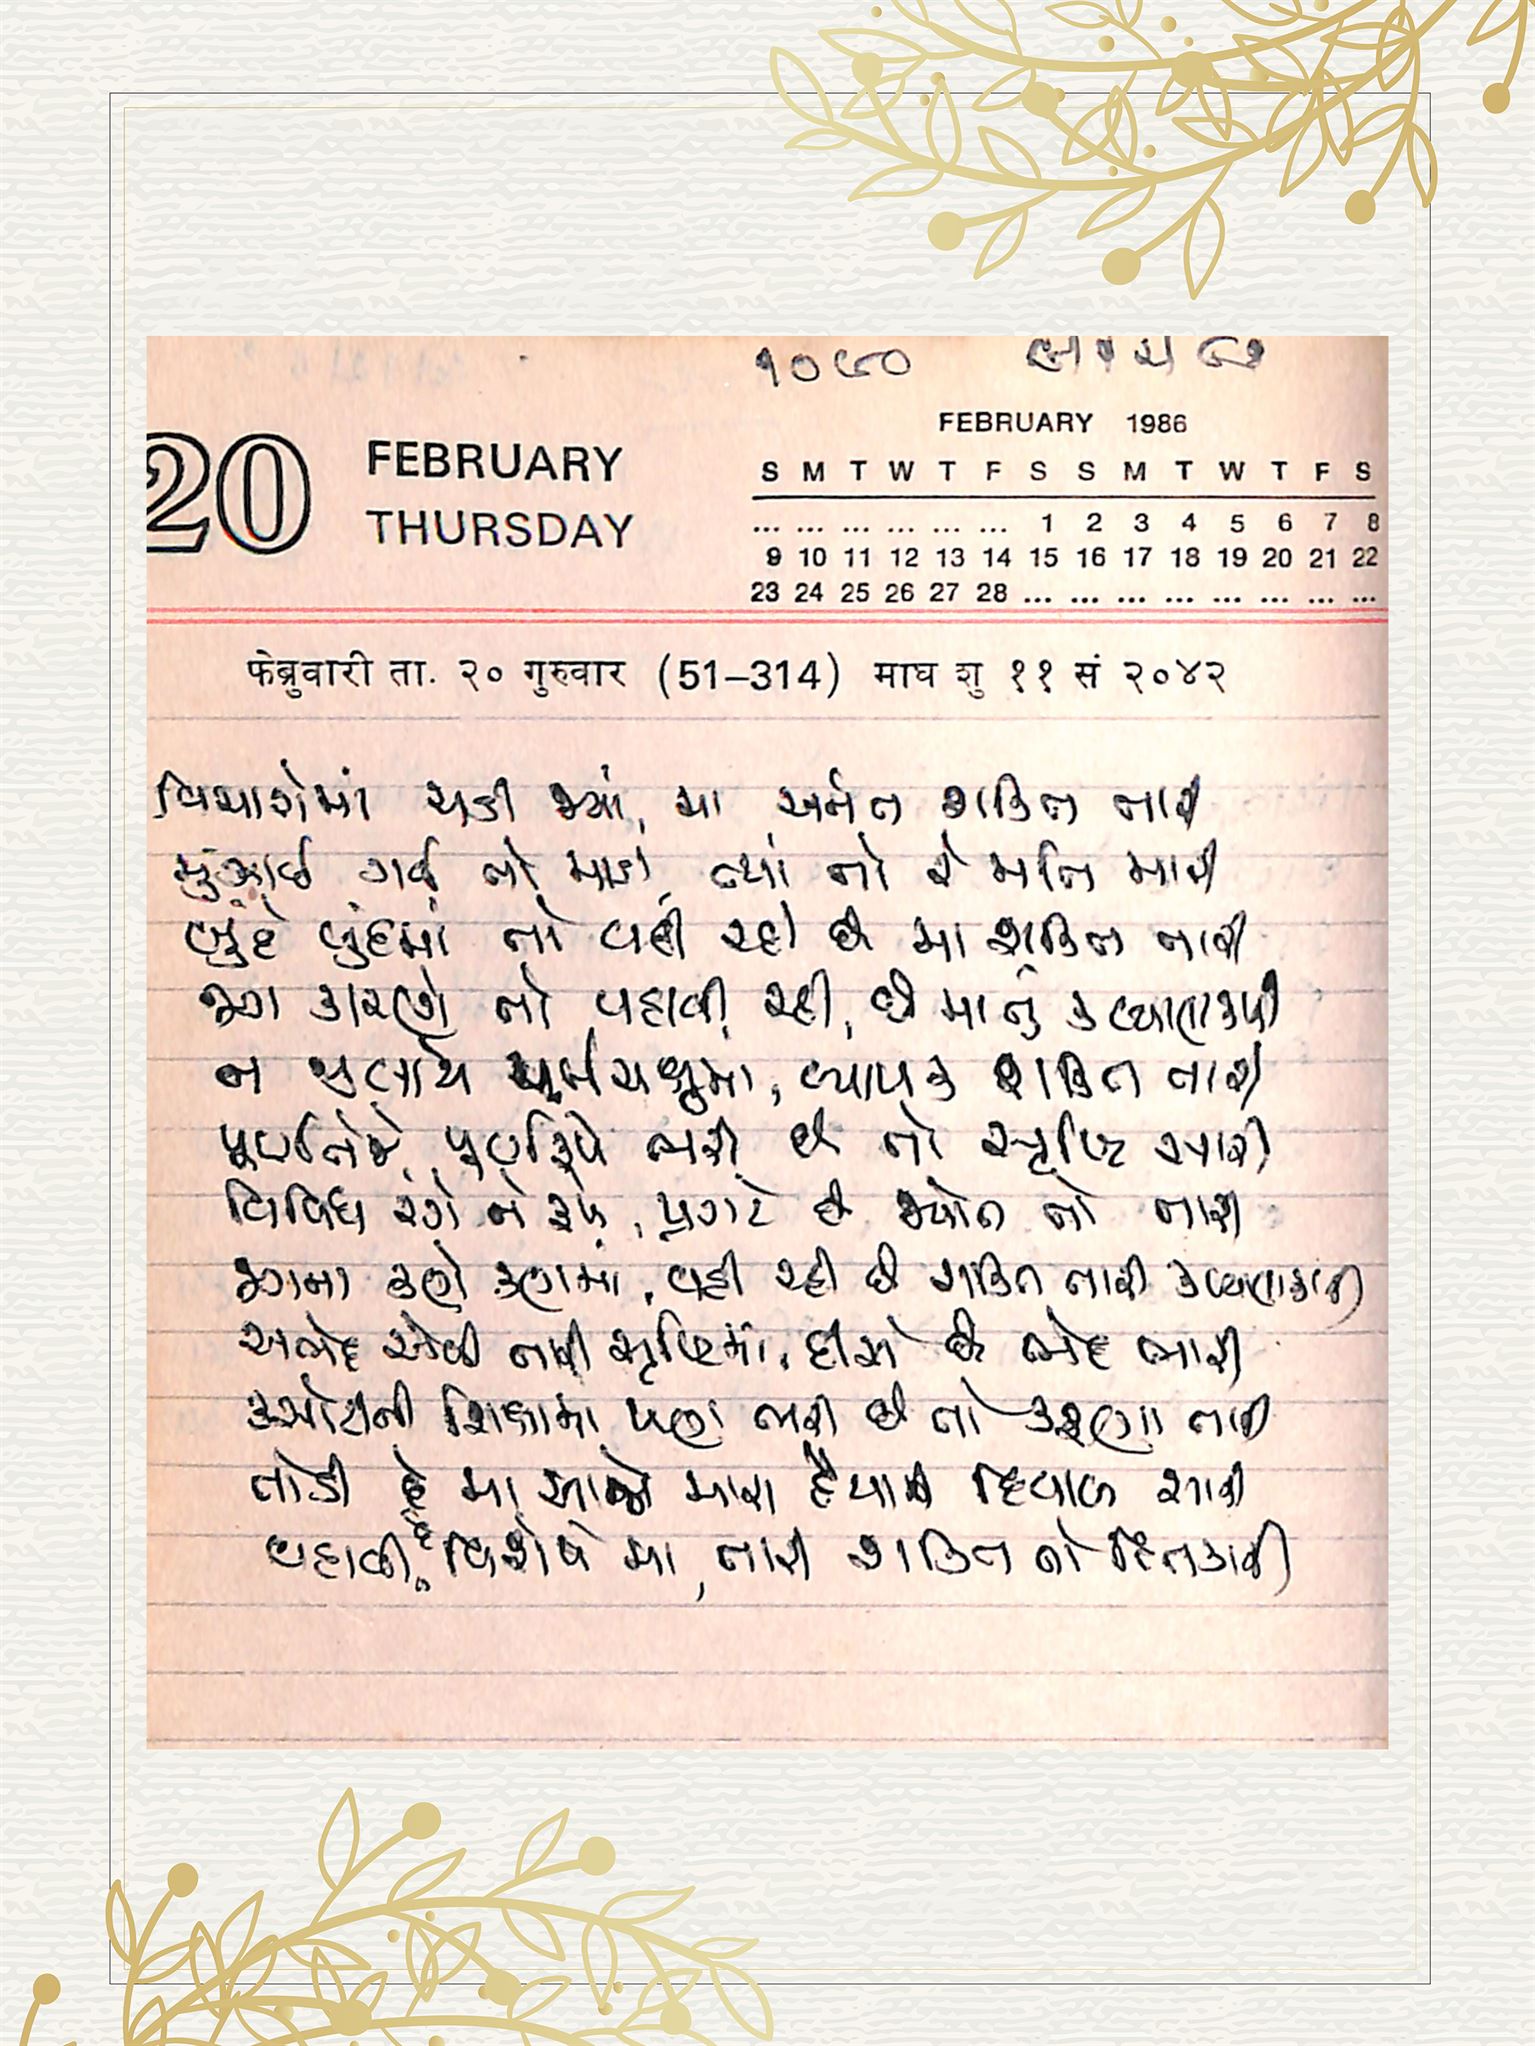 ૧૦૯૦
20
FEBRUARY
THURSDAY
FEBRUARY 1986
S M T W T F S S M T W T F S
... ... ... ... ... ... 1 2 3 4 5 6 7 8
9 10 11 12 13 14 15 16 17 18 19 20 21 22
23 24 25 26 27 28 ... ... ... ... ... ... ... ...
फेब्रुवारी ता. २० गुरुवार (51–314) माघ शु ११ सं २०४२
વિચારોમાં ચડી જ્યાં, મા અનંત શક્તિ તારી
મુંઝાઈ ગઈ તો માડી, ત્યાં તો રે મતિ મારી
બુંદે બુંદમાં તો વહી રહી છે મા શક્તિ તારી
જગ કારણે તો વહાવી રહી, છે મા તું કલ્યાણકારી
ન સમાયે ચર્મચક્ષુમાં, વ્યાપક શક્તિ તારી
પૂર્ણ તેજે, પૂર્ણ રૂપે ભરી છે તો સૃષ્ટિ સારી
વિવિધ રંગે ને રૂપે, પ્રગટે છે જ્યોત તો તારી
જગના કણે કણમાં, વહી રહી છે શક્તિ તારી કલ્યાણકારી
અભેદ એવી તારી સૃષ્ટિમાં, દીસે છે ભેદ ભારી
કસોટીની શિક્ષામાં પણ ભરી છે તો કરુણા તારી
તોડી દે મા આજે મારા હૈયાની દિવાલ સારી
વહાવી દે વિશેષે મા, તારી શક્તિ તો હિતકારી